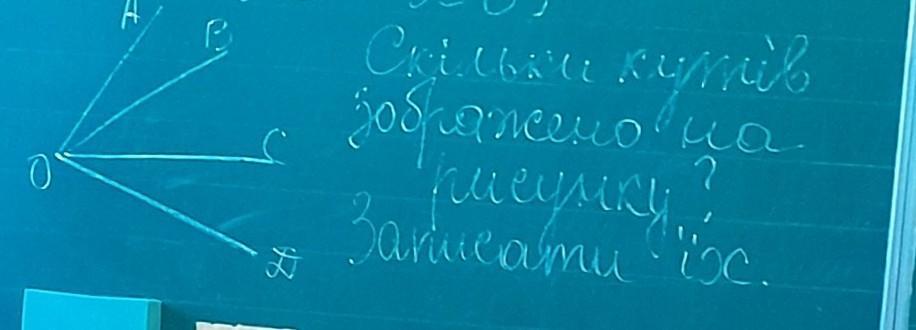 A
B
O
C
D
Скільки кутів
зображено на
рисунку?
Записати їх.